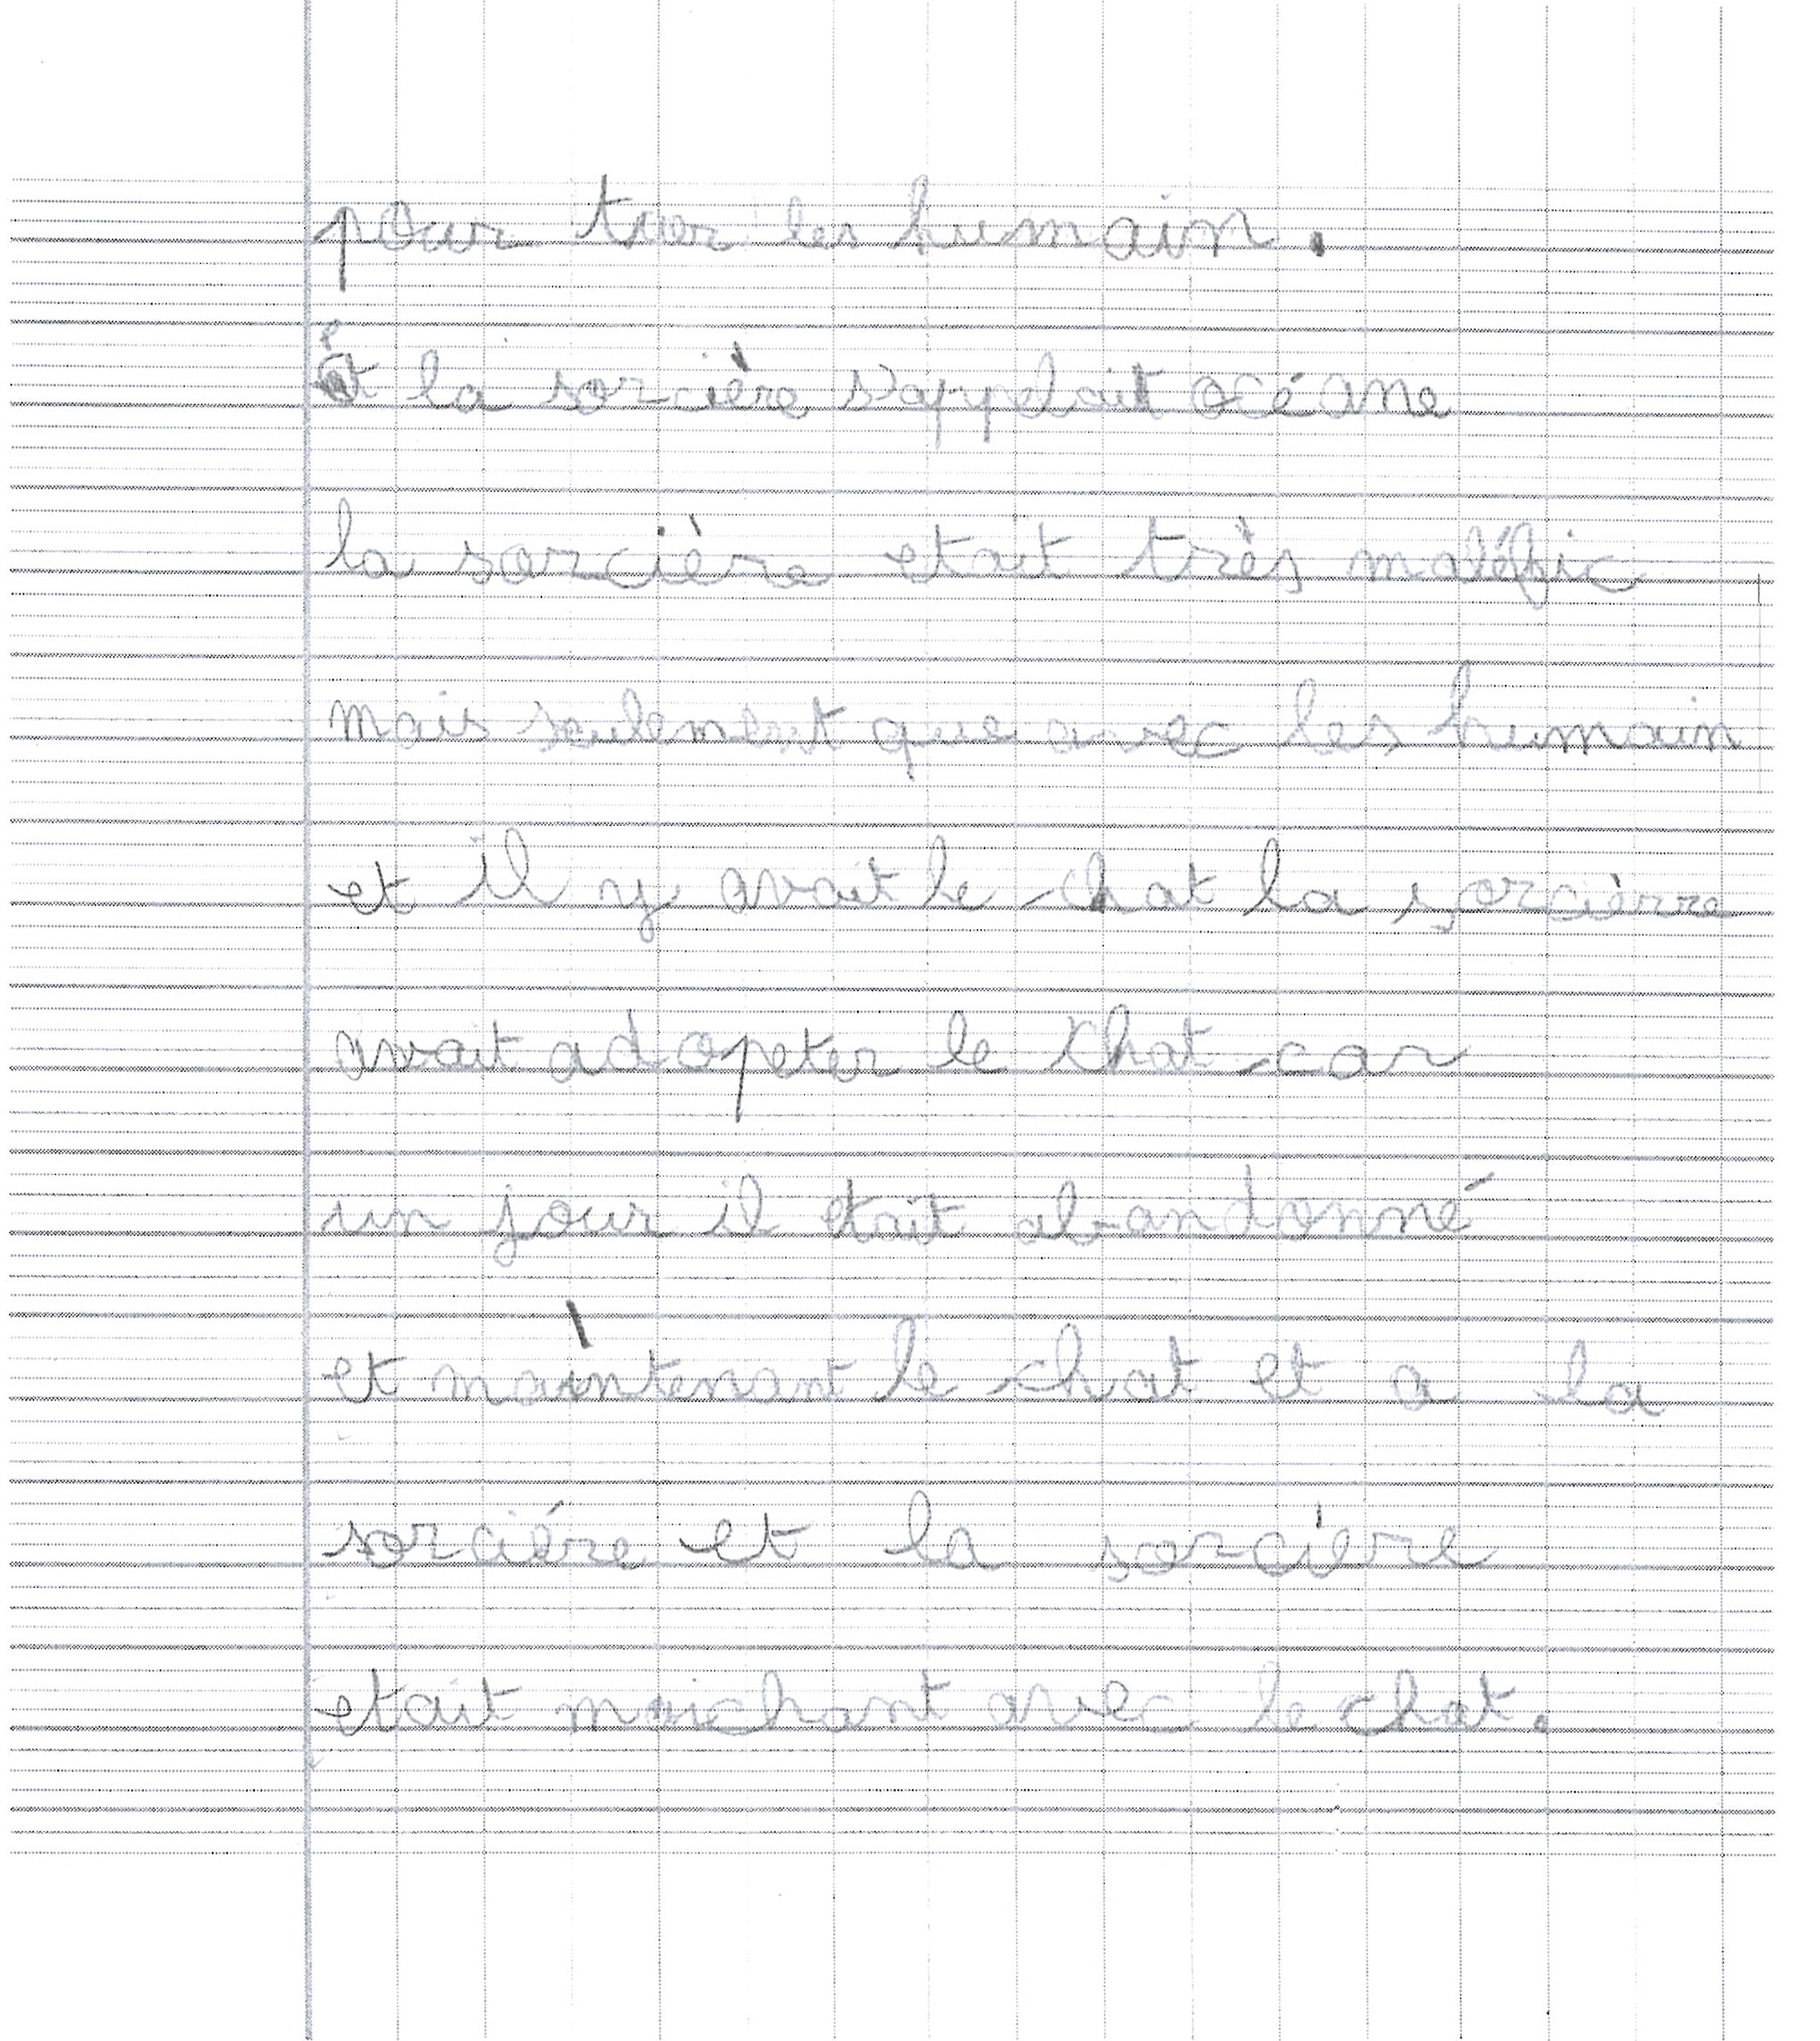 pour tuer les humain.
et la sorcière s'appelait océane
la sorcière etait très maléfic
mais seulement que avec les humain
et il y avait le chat la sorcièrre
avait adopeter le chat car
un jour il etait abandonné
et maintenant le chat et a la
sorciére et la sorcière
etait maichant avec le chat.